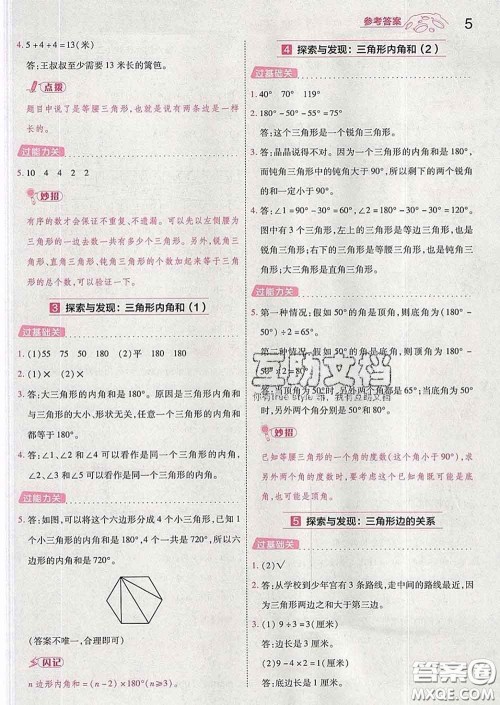 参考答案
5
4. 5+4+4=13(米)
答:王叔叔至少需要 13 米长的篱笆。
点拨
题目中说了是等腰三角形,也就是说有两条边是一样
长的。
过能力关
5. 10 4 4 2 2
妙招
有序的数才会保证不重复、不遗漏。可以先以左侧腰为
三角形的一条边来数一共有多少个三角形。另外,锐角三
角形、直角三角形、钝角三角形的个数加起来应等于三角
形的总个数,可以以此验证一下。
3 探索与发现:三角形内角和(1)
过基础关
1. (1)55 75 50 180 (2)平 180 180
2. (1)× (2)×
3. 答:大三角形的内角和是 180°。原因是三角形内角和
与三角形的大小、形状无关,任意一个三角形的内角和
都等于 180°。
4. ∠1、∠2 和∠6 可以看作是同一个三角形的内角,
∠2、∠3 和∠5 可以看作是同一个三角形的内角。
过能力关
5. 答:如图,可以将这个六边形分成 4 个小三角形,1 个
小三角形的内角和是 180°,4 个一共是 720°,所以六
边形的内角和是 720°。
(答案不唯一,合理即可)
闪记
n 边形内角和=(n-2)×180°(n≥3)。
4 探索与发现:三角形内角和(2)
过基础关
1. 40° 70° 119°
2. 180°-50°-55°=75°
答:这个三角形是一个锐角三角形。
3. 答:晶晶说得不对。因为三角形的内角和是 180°,钝
角三角形中的钝角大于 90°,所以剩下的两个锐角
的和一定小于 90°。
4. 答:∠1=90° ∠2=45° ∠3=45° ∠4=60°
图中有 3 个三角形,左上的三角形是等边三角形,也是
锐角三角形;右下的三角形是等腰三角形,也是钝角三
角形;最大的三角形是直角三角形。
过能力关
5. 第一种情况:假如 50°的角是顶角,则底角为(180°-
50°)÷2=65°。
第二种情况:假如 50°的角是底角,则顶角为 180°-
50°×2=80°。
答:当顶角为 50°时,另外两个角都是 65°;当底角为
50°时,另外两个角为 50°和 80°。
妙招
已知等腰三角形一个角的度数(这个角小于 90°),求
另外两个角的度数时,要考虑这个已知角既可能是底
角,也可能是顶角。
5 探索与发现:三角形边的关系
过基础关
1. (1)√ (2)×
2. 答:从学校到少年宫有 3 条路线,走中间的路线最近,因
为三角形两边之和大于第三边。
3. (1) 9÷3=3(厘米)
答:边长是 3 厘米。
(2) 9-4×2=1(厘米)
答:底边长是 1 厘米。
互助文档
答案圈
MXQE.COM